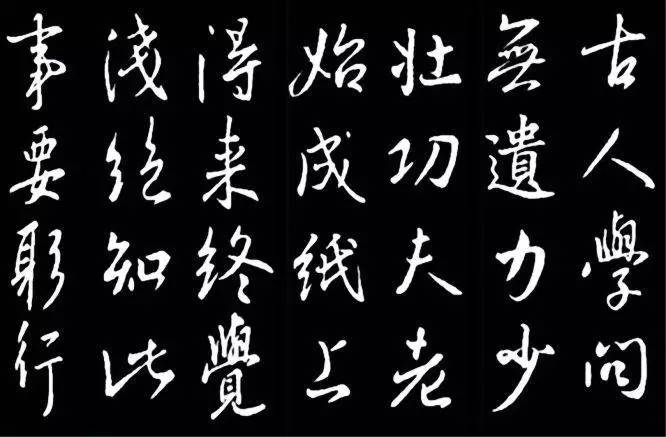 古人學問
無遺力少
壯功夫老
始成紙上
得来終覺
淺絕知此
事要躬行